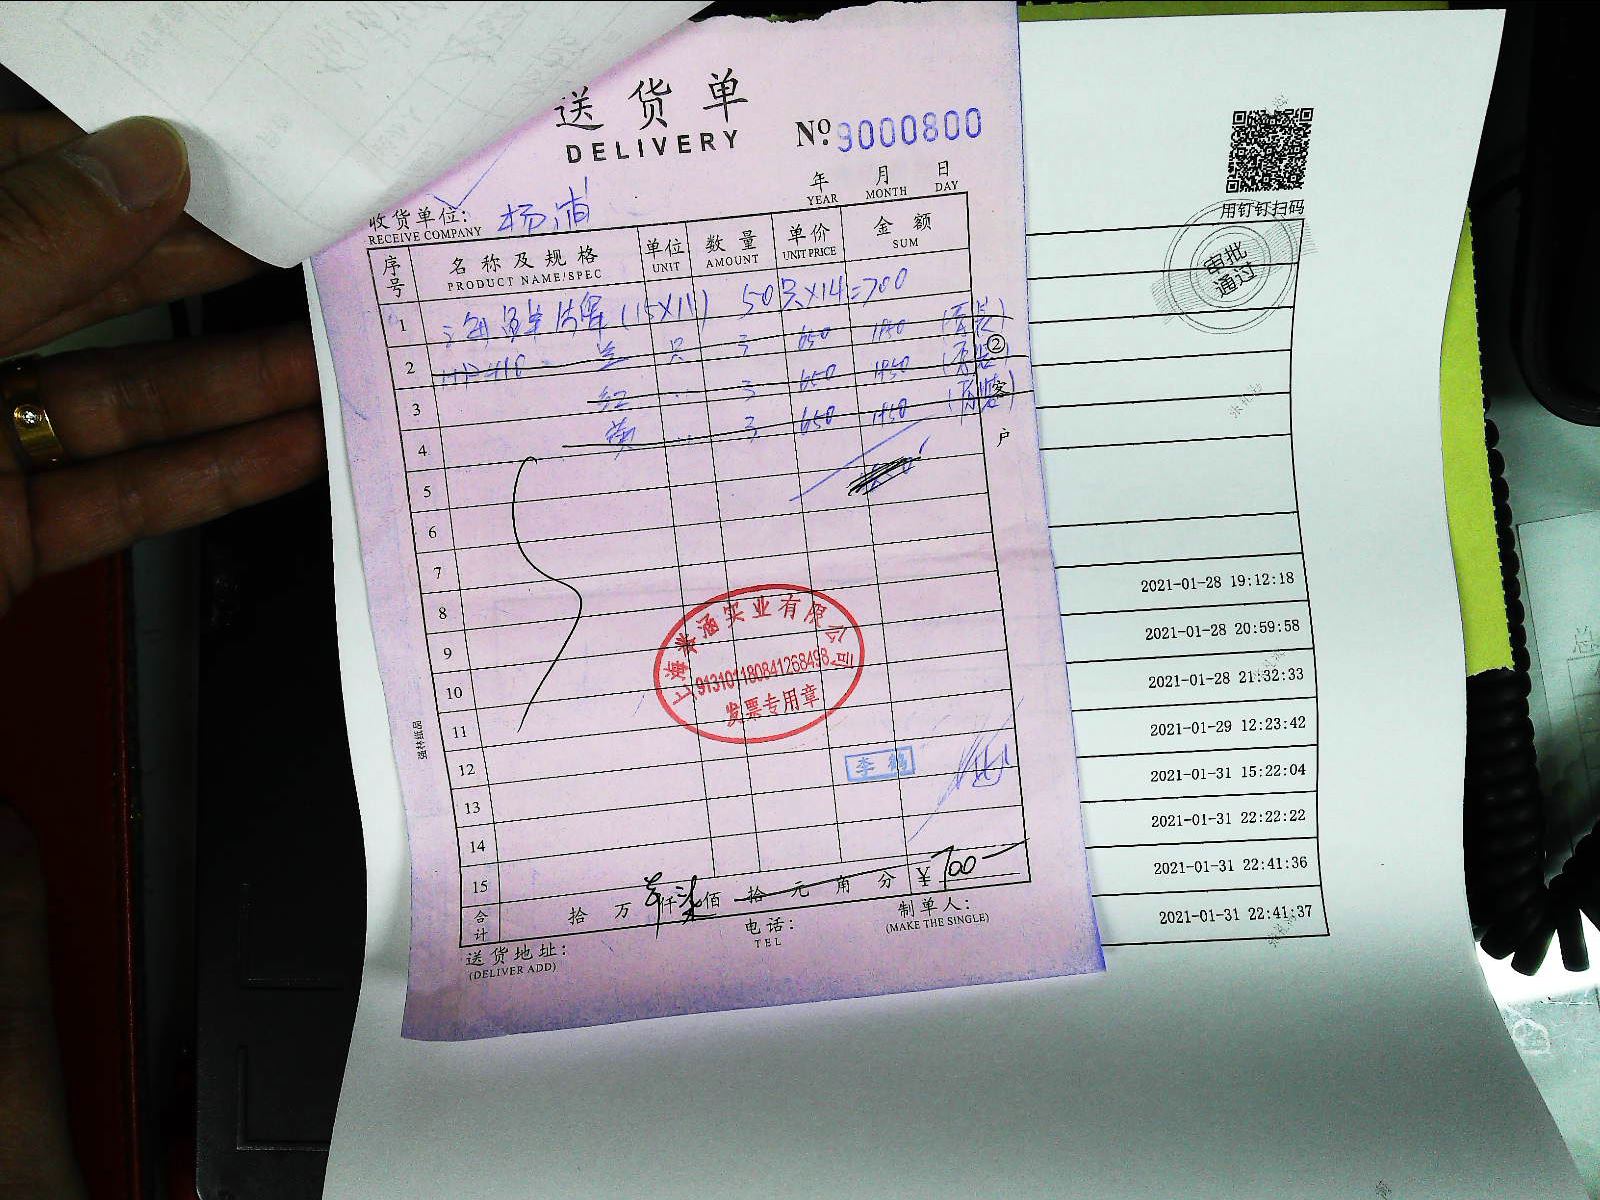 送货单
DELIVERY
№ 9000800
年 月 日
YEAR MONTH DAY
收货单位: 杨浦
RECEIVE COMPANY
序号 名称及规格 单位 数量 单价 金额
PRODUCT NAME/SPEC UNIT AMOUNT UNIT PRICE SUM
1 海鲜 (15X11) 50只X14=700
2 兰 只 3 650 1950 (原装)
3 红 3 650 1950 (原装)
4 黄 3 650 1950 (原装)
②客户
5
6
7
8
9
10
11
12
13
14
15
上海 涵实业有限公司
913101180841268498
发票专用章
李鹤
强林纸品
合计 拾 万 仟 柒 佰 拾 元 角 分 ¥700
送货地址:
(DELIVER ADD)
电话:
TEL
制单人:
(MAKE THE SINGLE)
用钉钉扫码
审批通过
2021-01-28 19:12:18
2021-01-28 20:59:58
2021-01-28 21:32:33
2021-01-29 12:23:42
2021-01-31 15:22:04
2021-01-31 22:22:22
2021-01-31 22:41:36
2021-01-31 22:41:37